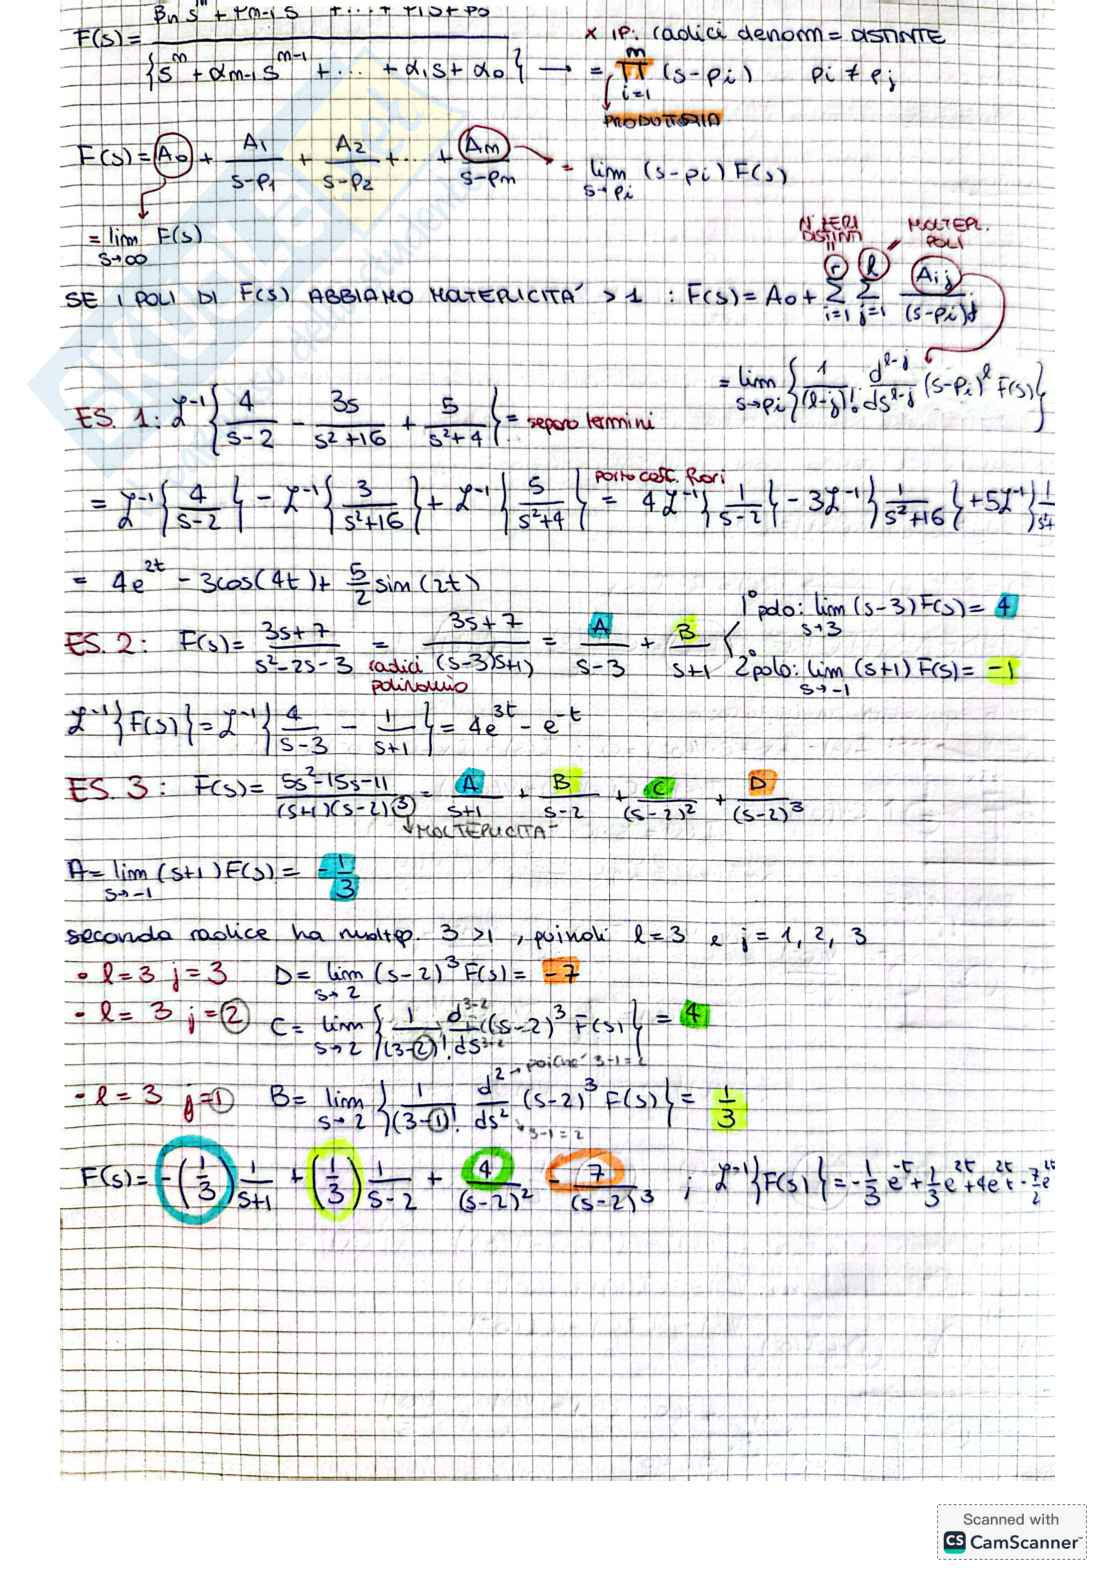 F(s)= βn s^m + βm-1 s + ... + β1 s + β0 / {s^m + αm-1 s^m-1 + ... + α1 s + α0} → = ∏ i=1 m (s-pi) pi ≠ pj
x IP: radici denom = DISTINTE
PRODUTTORIA
F(s) = A0 + A1/(s-p1) + A2/(s-p2) + ... + Am/(s-pm) = lim s→pi (s-pi) F(s)
= lim s→∞ F(s)
N° ZERI DISTINTI
MOLTEPL. POLI
SE I POLI DI F(s) ABBIAMO MOLTEPLICITA' > 1 : F(s) = A0 + Σ i=1 r Σ j=1 l Aij/(s-pi)^j
= lim s→pi {1/(l-j)! d^l-j/ds^l-j (s-pi)^l F(s)}
ES. 1: L^-1 {4/(s-2) - 3s/(s²+16) + 5/(s²+4)} = separo termini
= L^-1 {4/(s-2)} - L^-1 {3/(s²+16)} + L^-1 {5/(s²+4)} = porto coef. fuori 4L^-1 {1/(s-2)} - 3L^-1 {1/(s²+16)} + 5L^-1 {1/s²+4
= 4e^2t - 3cos(4t) + 5/2 sin(2t)
ES. 2: F(s) = (3s+7)/(s²-2s-3) = (3s+7)/((s-3)(s+1)) = A/(s-3) + B/(s+1)
radici polinomio
1° polo: lim s→3 (s-3)F(s) = 4
2° polo: lim s→-1 (s+1) F(s) = -1
L^-1 {F(s)} = L^-1 {4/(s-3) - 1/(s+1)} = 4e^3t - e^-t
ES. 3: F(s) = (5s²-15s-11)/((s+1)(s-2)^3) = A/(s+1) + B/(s-2) + C/(s-2)² + D/(s-2)³
MOLTEPLICITA'
A = lim s→-1 (s+1) F(s) = -1/3
seconda radice ha moltep. 3 > 1, quindi l=3 e j = 1, 2, 3
• l=3 j=3 D = lim s→2 (s-2)³ F(s) = -7
- l=3 j=2 C = lim s→2 {1/(3-2)! d^3-2/ds^3-2 ((s-2)³ F(s)} = 4
poiche' 3-1=2
- l=3 j=1 B = lim s→2 {1/(3-1)! d²/ds² (s-2)³ F(s)} = 1/3
3-1=2
F(s) = -(1/3) 1/(s+1) + (1/3) 1/(s-2) + 4/(s-2)² - 7/(s-2)³ ; L^-1 {F(s)} = -1/3 e^-t + 1/3 e^2t + 4e^2t t - 7/2 e^2t
Scanned with
CS CamScanner